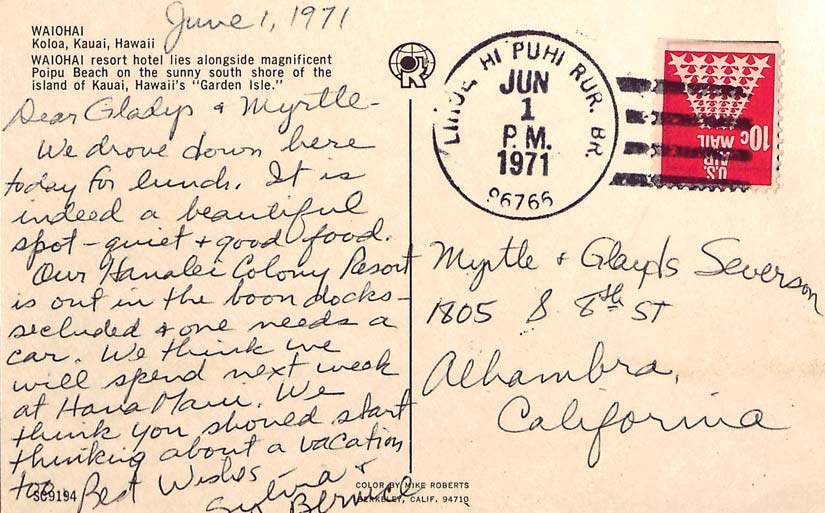 June 1, 1971
WAIOHAI
Koloa, Kauai, Hawaii
WAIOHAI resort hotel lies alongside magnificent
Poipu Beach on the sunny south shore of the
island of Kauai, Hawaii's "Garden Isle."
Dear Gladys & Myrtle-
We drove down here
today for lunch. It is
indeed a beautiful
spot - quiet & good food.
Our Hanalei Colony Resort
is out in the boon docks -
secluded & one needs a
car. We think we
will spend next week
at Hana Maui. We
think you should start
thinking about a vacation
too. Best Wishes
Sylvia &
Bernice
SC9194
COLOR BY MIKE ROBERTS
BERKELEY, CALIF. 94710
LIHUE HI PUHI RUR. BR.
JUN
1
P.M.
1971
96766
10c
U.S.
AIR
MAIL
Myrtle & Glayds Severson
1805 S 8th ST
Alhambra,
California